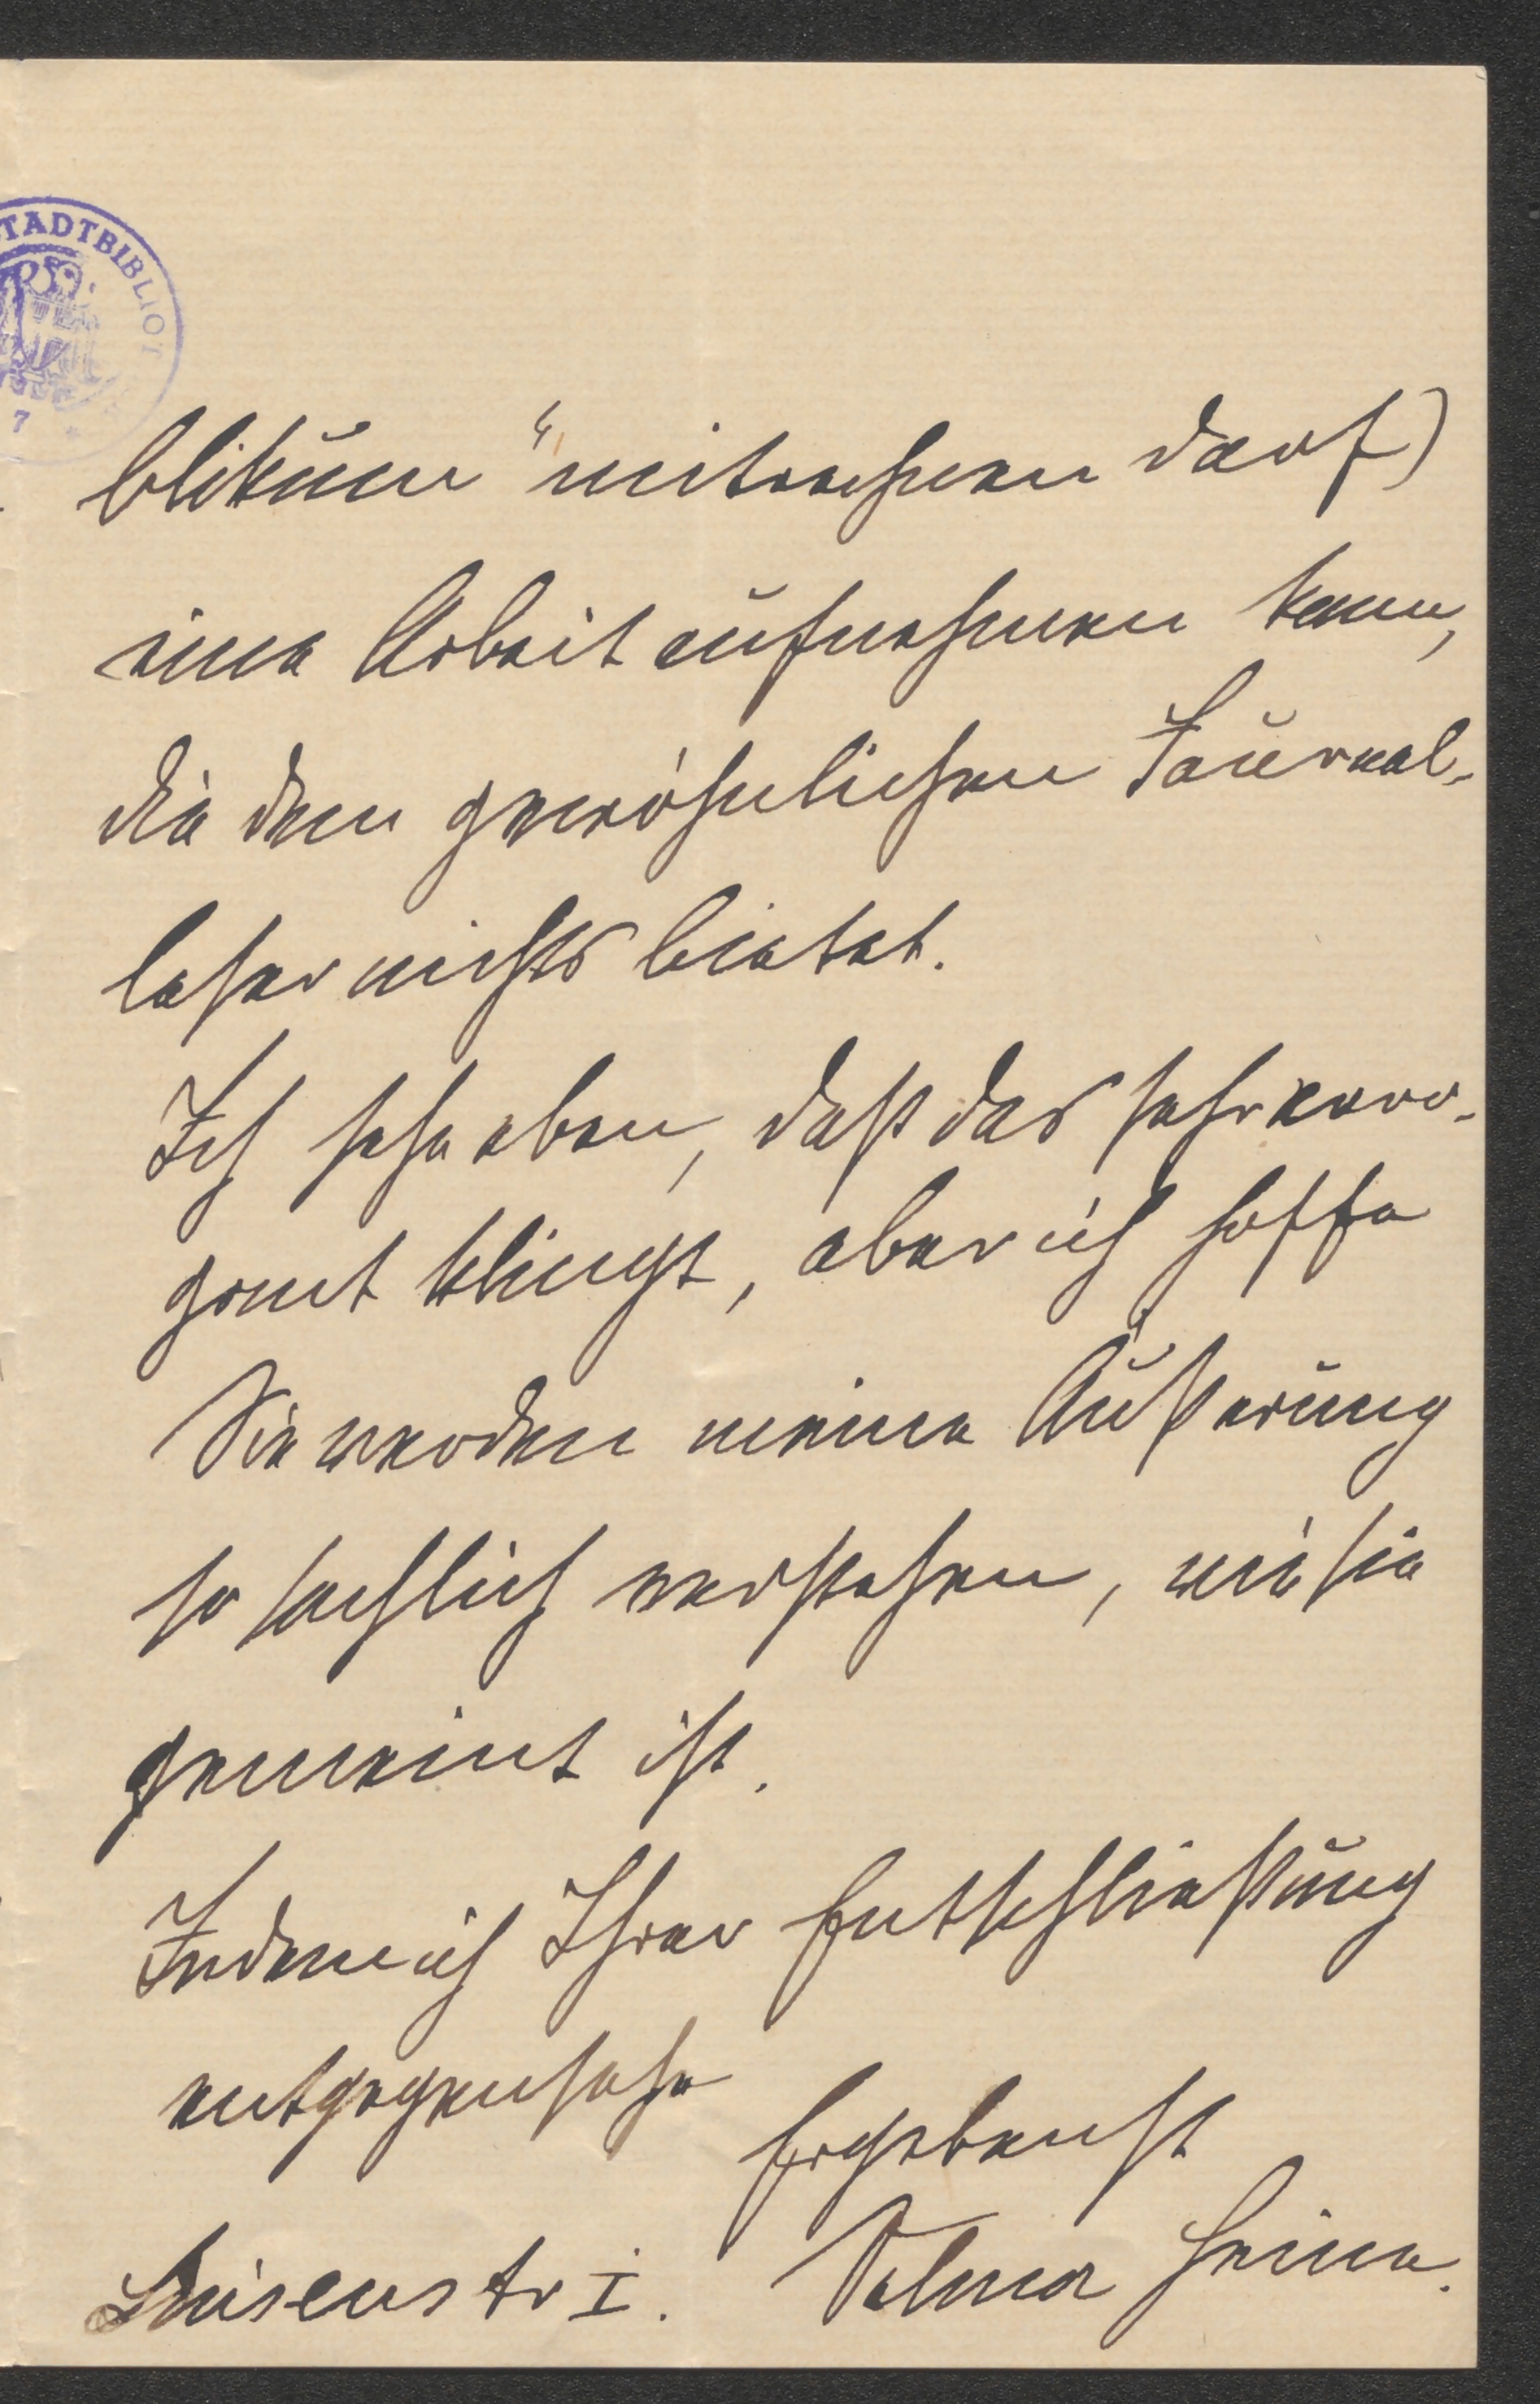 STADTBIBLIOT
7
blikum" mitrechnen darf)
eine Arbeit aufnehmen kann,
die dem gewöhnlichen Journal-
leser nichts bietet.
Ich sehe eben, daß das sehr arro-
gant klingt, aber ich hoffe
Sie werden meine Äußerung
so sachlich verstehen, wie sie
gemeint ist.
Indem ich Ihrer Entschließung
entgegensehe
Ergebenst
Luisenstr I. Selma Heine.